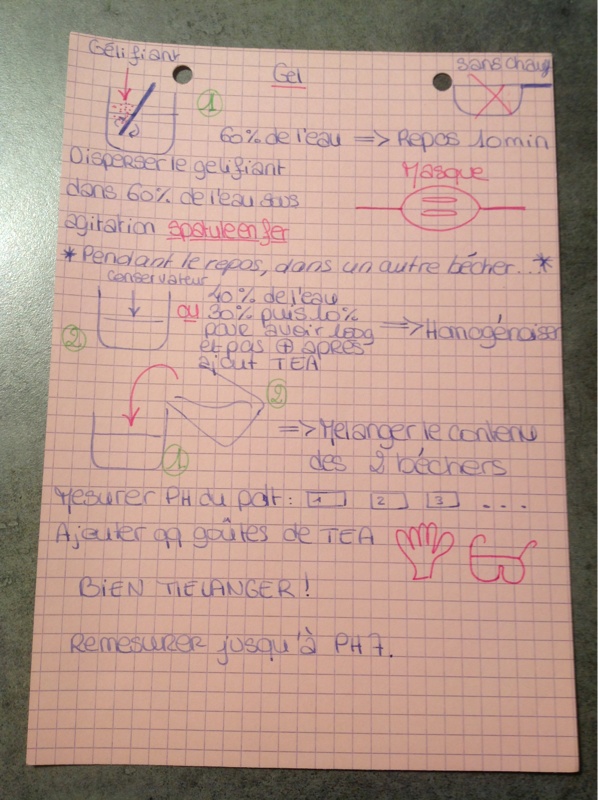 Gélifiant
Gel
sans chauf
1
60% de l'eau => Repos 10min
Disperser le gélifiant
dans 60% de l'eau sous
agitation spatule en fer
Masque
*Pendant le repos, dans un autre bécher..*
conservateur
2
40% de l'eau
ou 30% puis 10%
pour avoir 100g
et pas + après
ajout TEA
=> Homogénaiser
2
1
=> Mélanger le contenu
des 2 béchers
Mesurer PH du pdt: 1 2 3 ...
Ajouter qq goûtes de TEA
BIEN MELANGER!
Remesurer jusqu'à PH7.